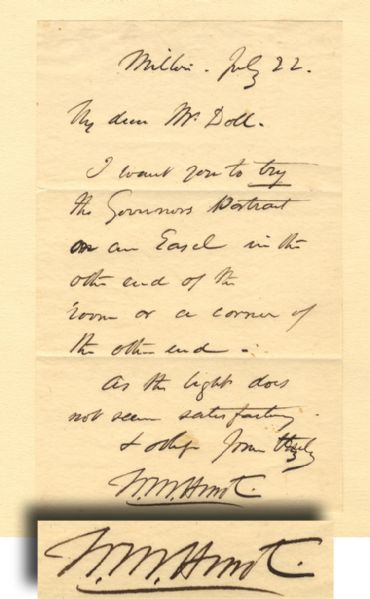 Milton. July 22.
My dear Mr. Doll.
I want you to try
the Governors Portrait
on an Easel in the
other end of the
room or a corner of
the other end.
As the light does
not seem satisfactory.
& oblige Yours truly
W.M. Hunt.
W.M. Hunt.